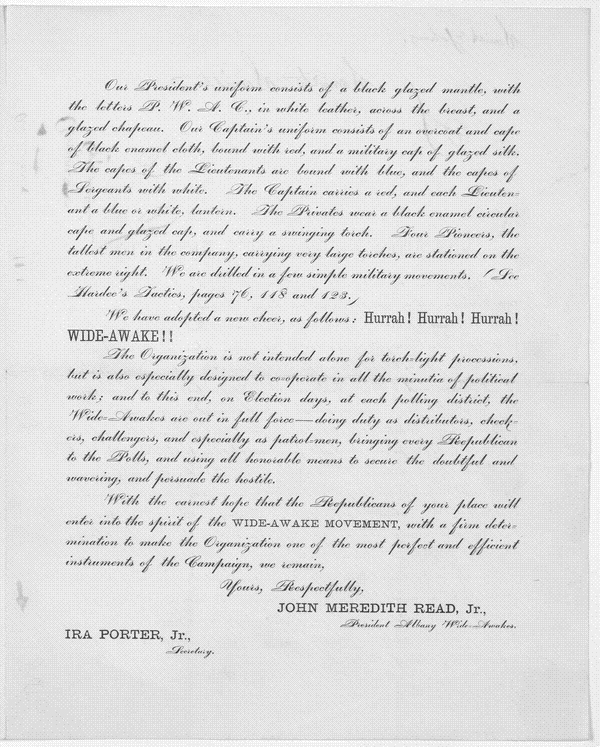 Our President's uniform consists of a black glazed mantle, with
the letters P. W. A. C., in white leather, across the breast, and a
glazed chapeau. Our Captain's uniform consists of an overcoat and cape
of black enamel cloth, bound with red, and a military cap of glazed silk.
The capes of the Lieutenants are bound with blue, and the capes of
Sergeants with white. The Captain carries a red, and each Lieuten-
ant a blue or white, lantern. The Privates wear a black enamel circular
cape and glazed cap, and carry a swinging torch. Four Pioneers, the
tallest men in the company, carrying very large torches, are stationed on the
extreme right. We are drilled in a few simple military movements. (See
Hardee's Tactics, pages 76, 118 and 123.)
We have adopted a new cheer, as follows: Hurrah! Hurrah! Hurrah!
WIDE-AWAKE!!
The Organization is not intended alone for torch-light processions,
but is also especially designed to co-operate in all the minutia of political
work; and to this end, on Election days, at each polling district, the
Wide-Awakes are out in full force—doing duty as distributors, check-
ers, challengers, and especially as patrol-men, bringing every Republican
to the Polls, and using all honorable means to secure the doubtful and
wavering, and persuade the hostile.
With the earnest hope that the Republicans of your place will
enter into the spirit of the WIDE-AWAKE MOVEMENT, with a firm deter-
mination to make the Organization one of the most perfect and efficient
instruments of the Campaign, we remain,
Yours, Respectfully,
JOHN MEREDITH READ, Jr.,
President Albany Wide-Awakes.
IRA PORTER, Jr.,
Secretary.